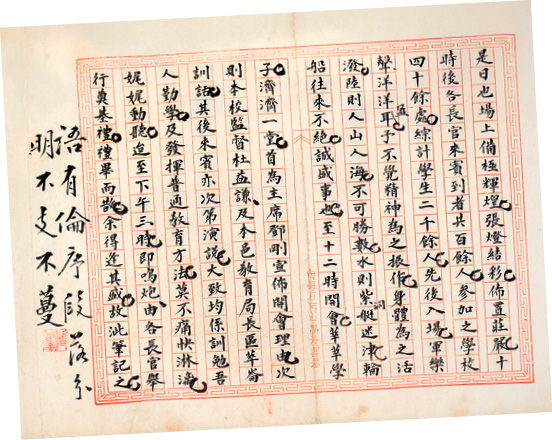 是日也場上備極輝煌張燈結彩佈置莊嚴十
時後各長官來賓到者共百餘人參加之學校
四十餘處綜計學生二千餘人先後入場軍樂
聲洋洋盈耳予不覺精神為之振作身體為之活
潑陸則人山人海不可勝數水則紫艇迷津輪
船往來不絕誠盛事也至十二時開會莘莘學
子濟濟一堂首為主席鄧剛宣佈開會理由次
則本校監督杜益謙及本邑教育局長區萃崙
訓話其後來賓亦次第演說大致均係訓勉吾
人勤學及發揮普通教育方法莫不痛快淋漓
娓娓動聽迨至下午三時即鳴炮由各長官舉
行奠基禮禮畢而散余得逢其盛故泚筆記之
語有倫序段落分
明不支不蔓